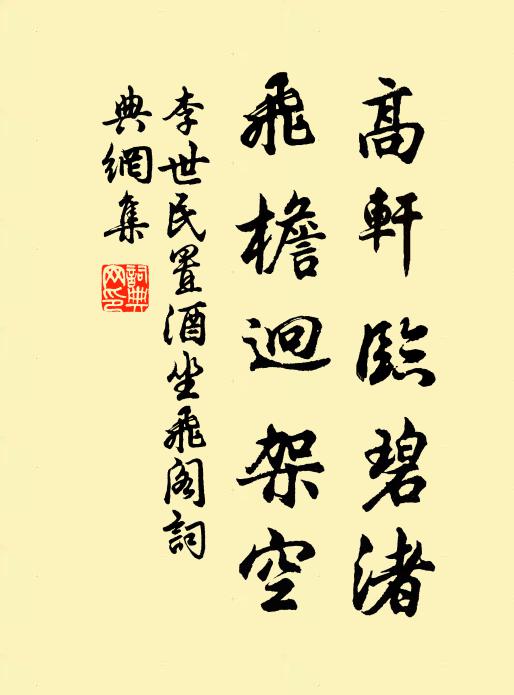 高軒臨碧渚
飛檐迥架空
李世民置酒坐飛阁詞
典網集
詞典
网印